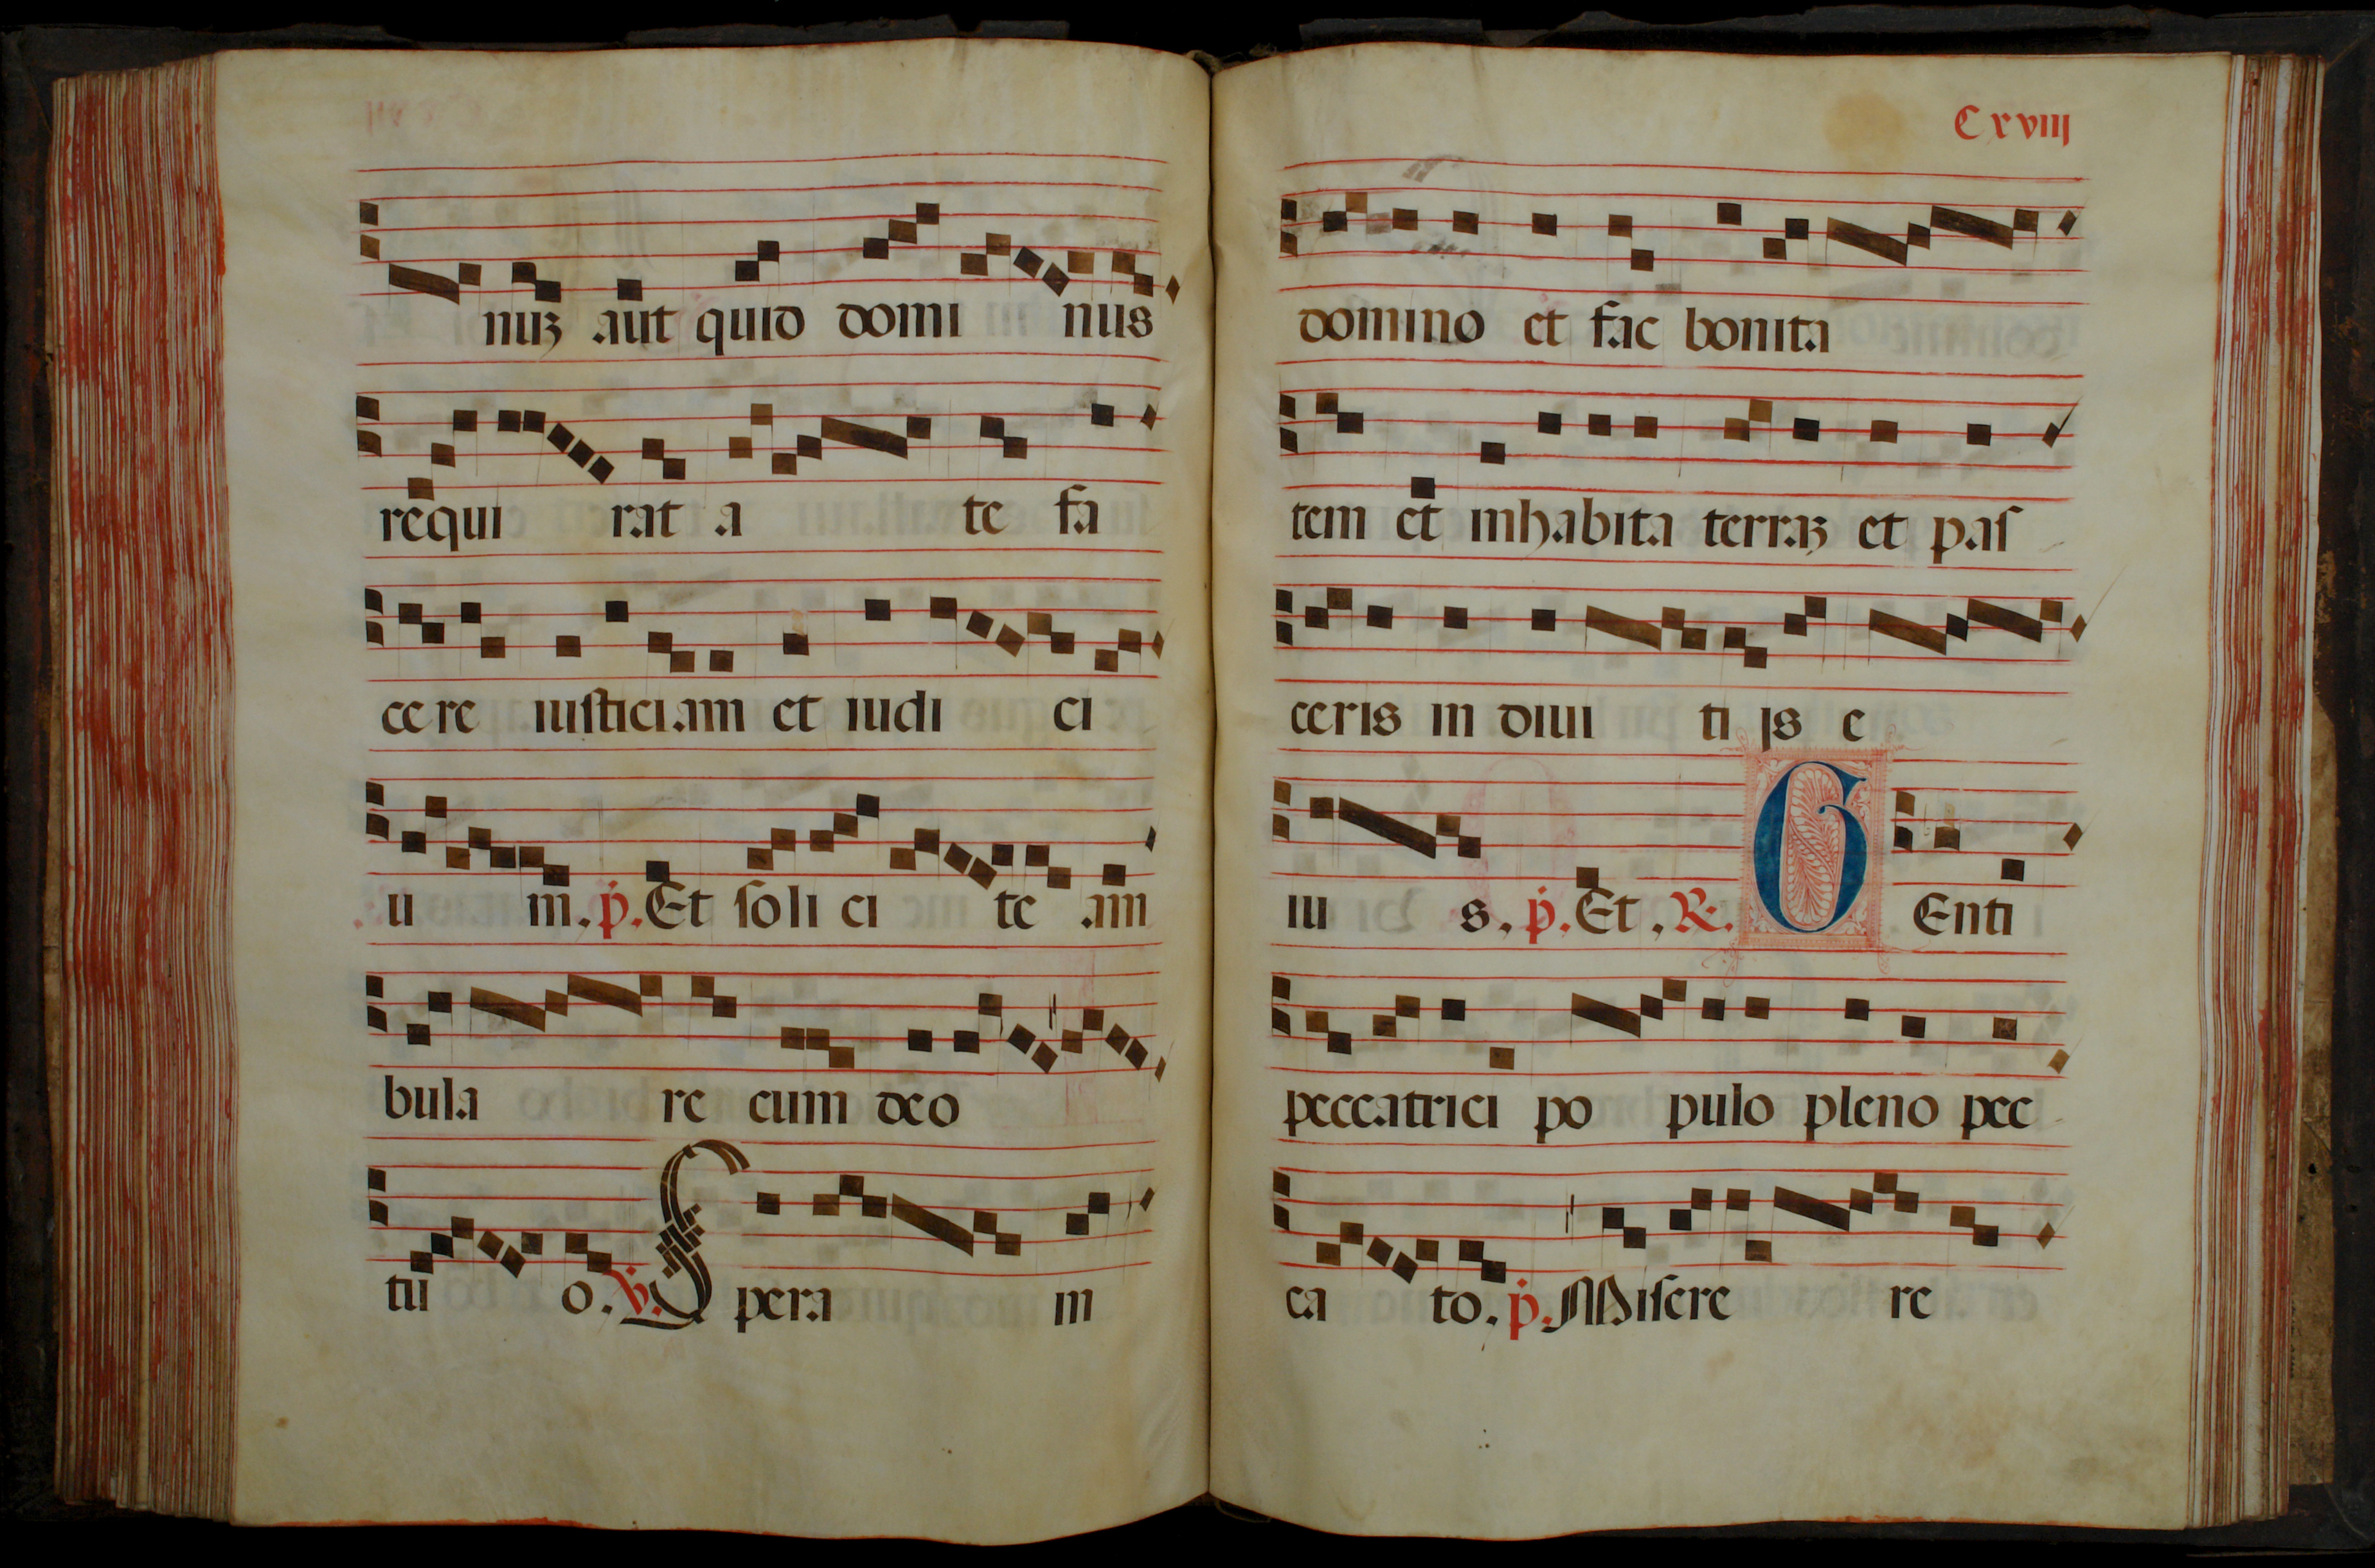 nuꝫ aut quid domi nus
requi rat a te fa
ce re iusticiam et iudi ci
u m. p. Et soli ci te am
bula re cum deo
tu o. v. Spera in
Cxviiij
domino et fac bonita
tem et inhabita terraꝫ et pas
ceris in diui ti js e
iu s. p. Et. R. G Enti
peccatrici po pulo pleno pec
ca to. p. Misere re